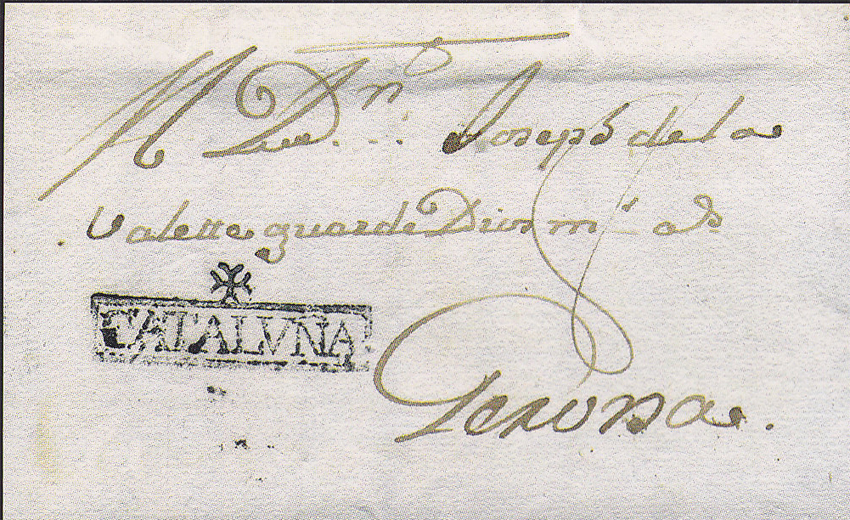 A Dn. Joseph de la
Valette guarde Dios ms. as.
CATALVÑA
Gerona.